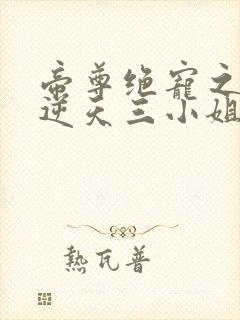 帝尊绝寵之
逆天三小姐
熱瓦普